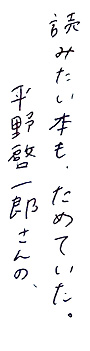 読みたい本も、ためていた。
平野啓一郎さんの、